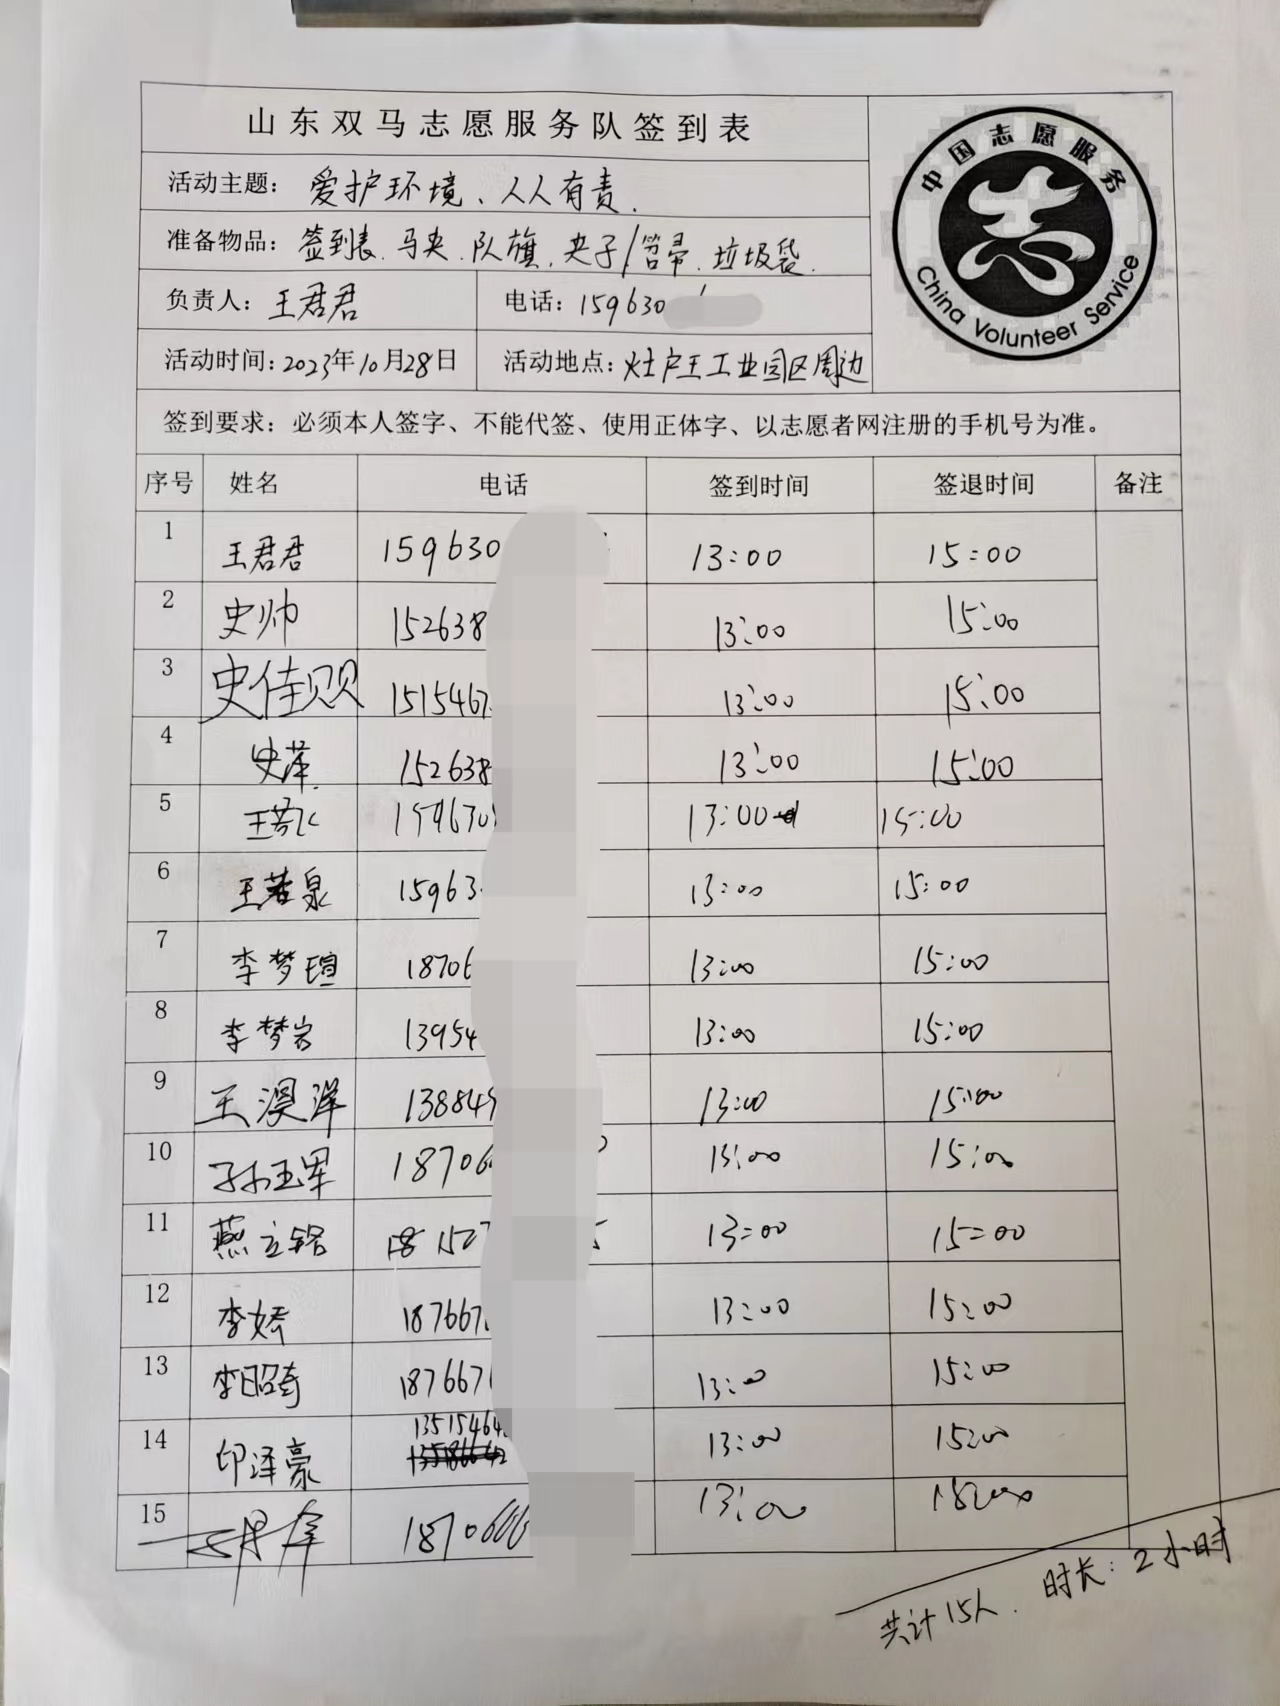 山东双马志愿服务队签到表
中国志愿服务
志
China Volunteer Service
活动主题：爱护环境、人人有责.
准备物品：签到表.马夹.队旗.夹子/笤帚.垃圾袋.
负责人：王君君 电话：159630
活动时间：2023年10月28日 活动地点：灶户王工业园区周边
签到要求：必须本人签字、不能代签、使用正体字、以志愿者网注册的手机号为准。
序号 姓名 电话 签到时间 签退时间 备注
1 王君君 159630 13:00 15:00
2 史帅 152638 13:00 15:00
3 史佳贝 1515467 13:00 15:00
4 史泽 152638 13:00 15:00
5 159630 13:00 15:00
6 王若泉 15963 13:00 15:00
7 李梦瑄 18706 13:00 15:00
8 李梦岩 13954 13:00 15:00
9 王澳洋 138849 13:00 15:00
10 孙玉军 18706 13:00 15:00
11 燕立铭 181527 13:00 15:00
12 李娇 187667 13:00 15:00
13 李昭奇 187667 13:00 15:00
14 印泽豪 13515464 13:00 15:00
15 1870606 13:00
共计15人. 时长：2小时